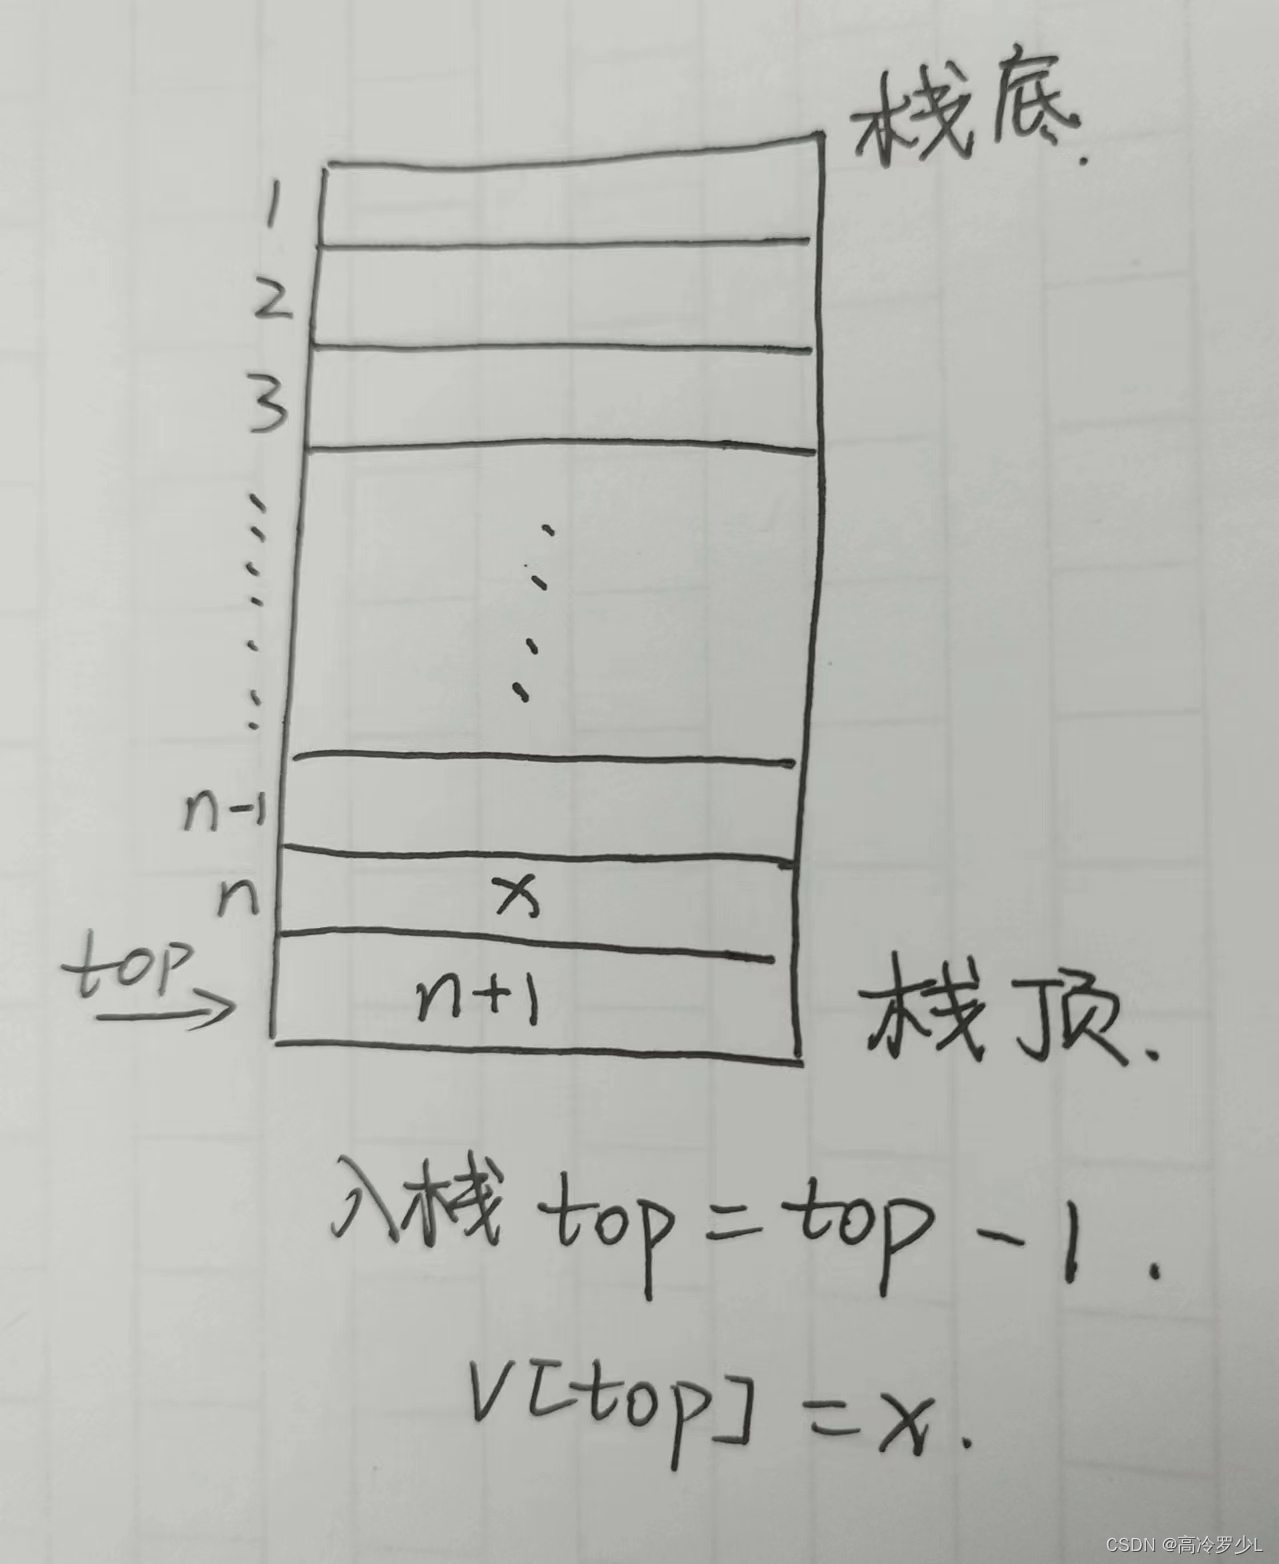 栈底.
1
2
3
n-1
n x
top
n+1
栈顶.
入栈 top = top - 1.
V[top] = x.
CSDN @高冷罗少L